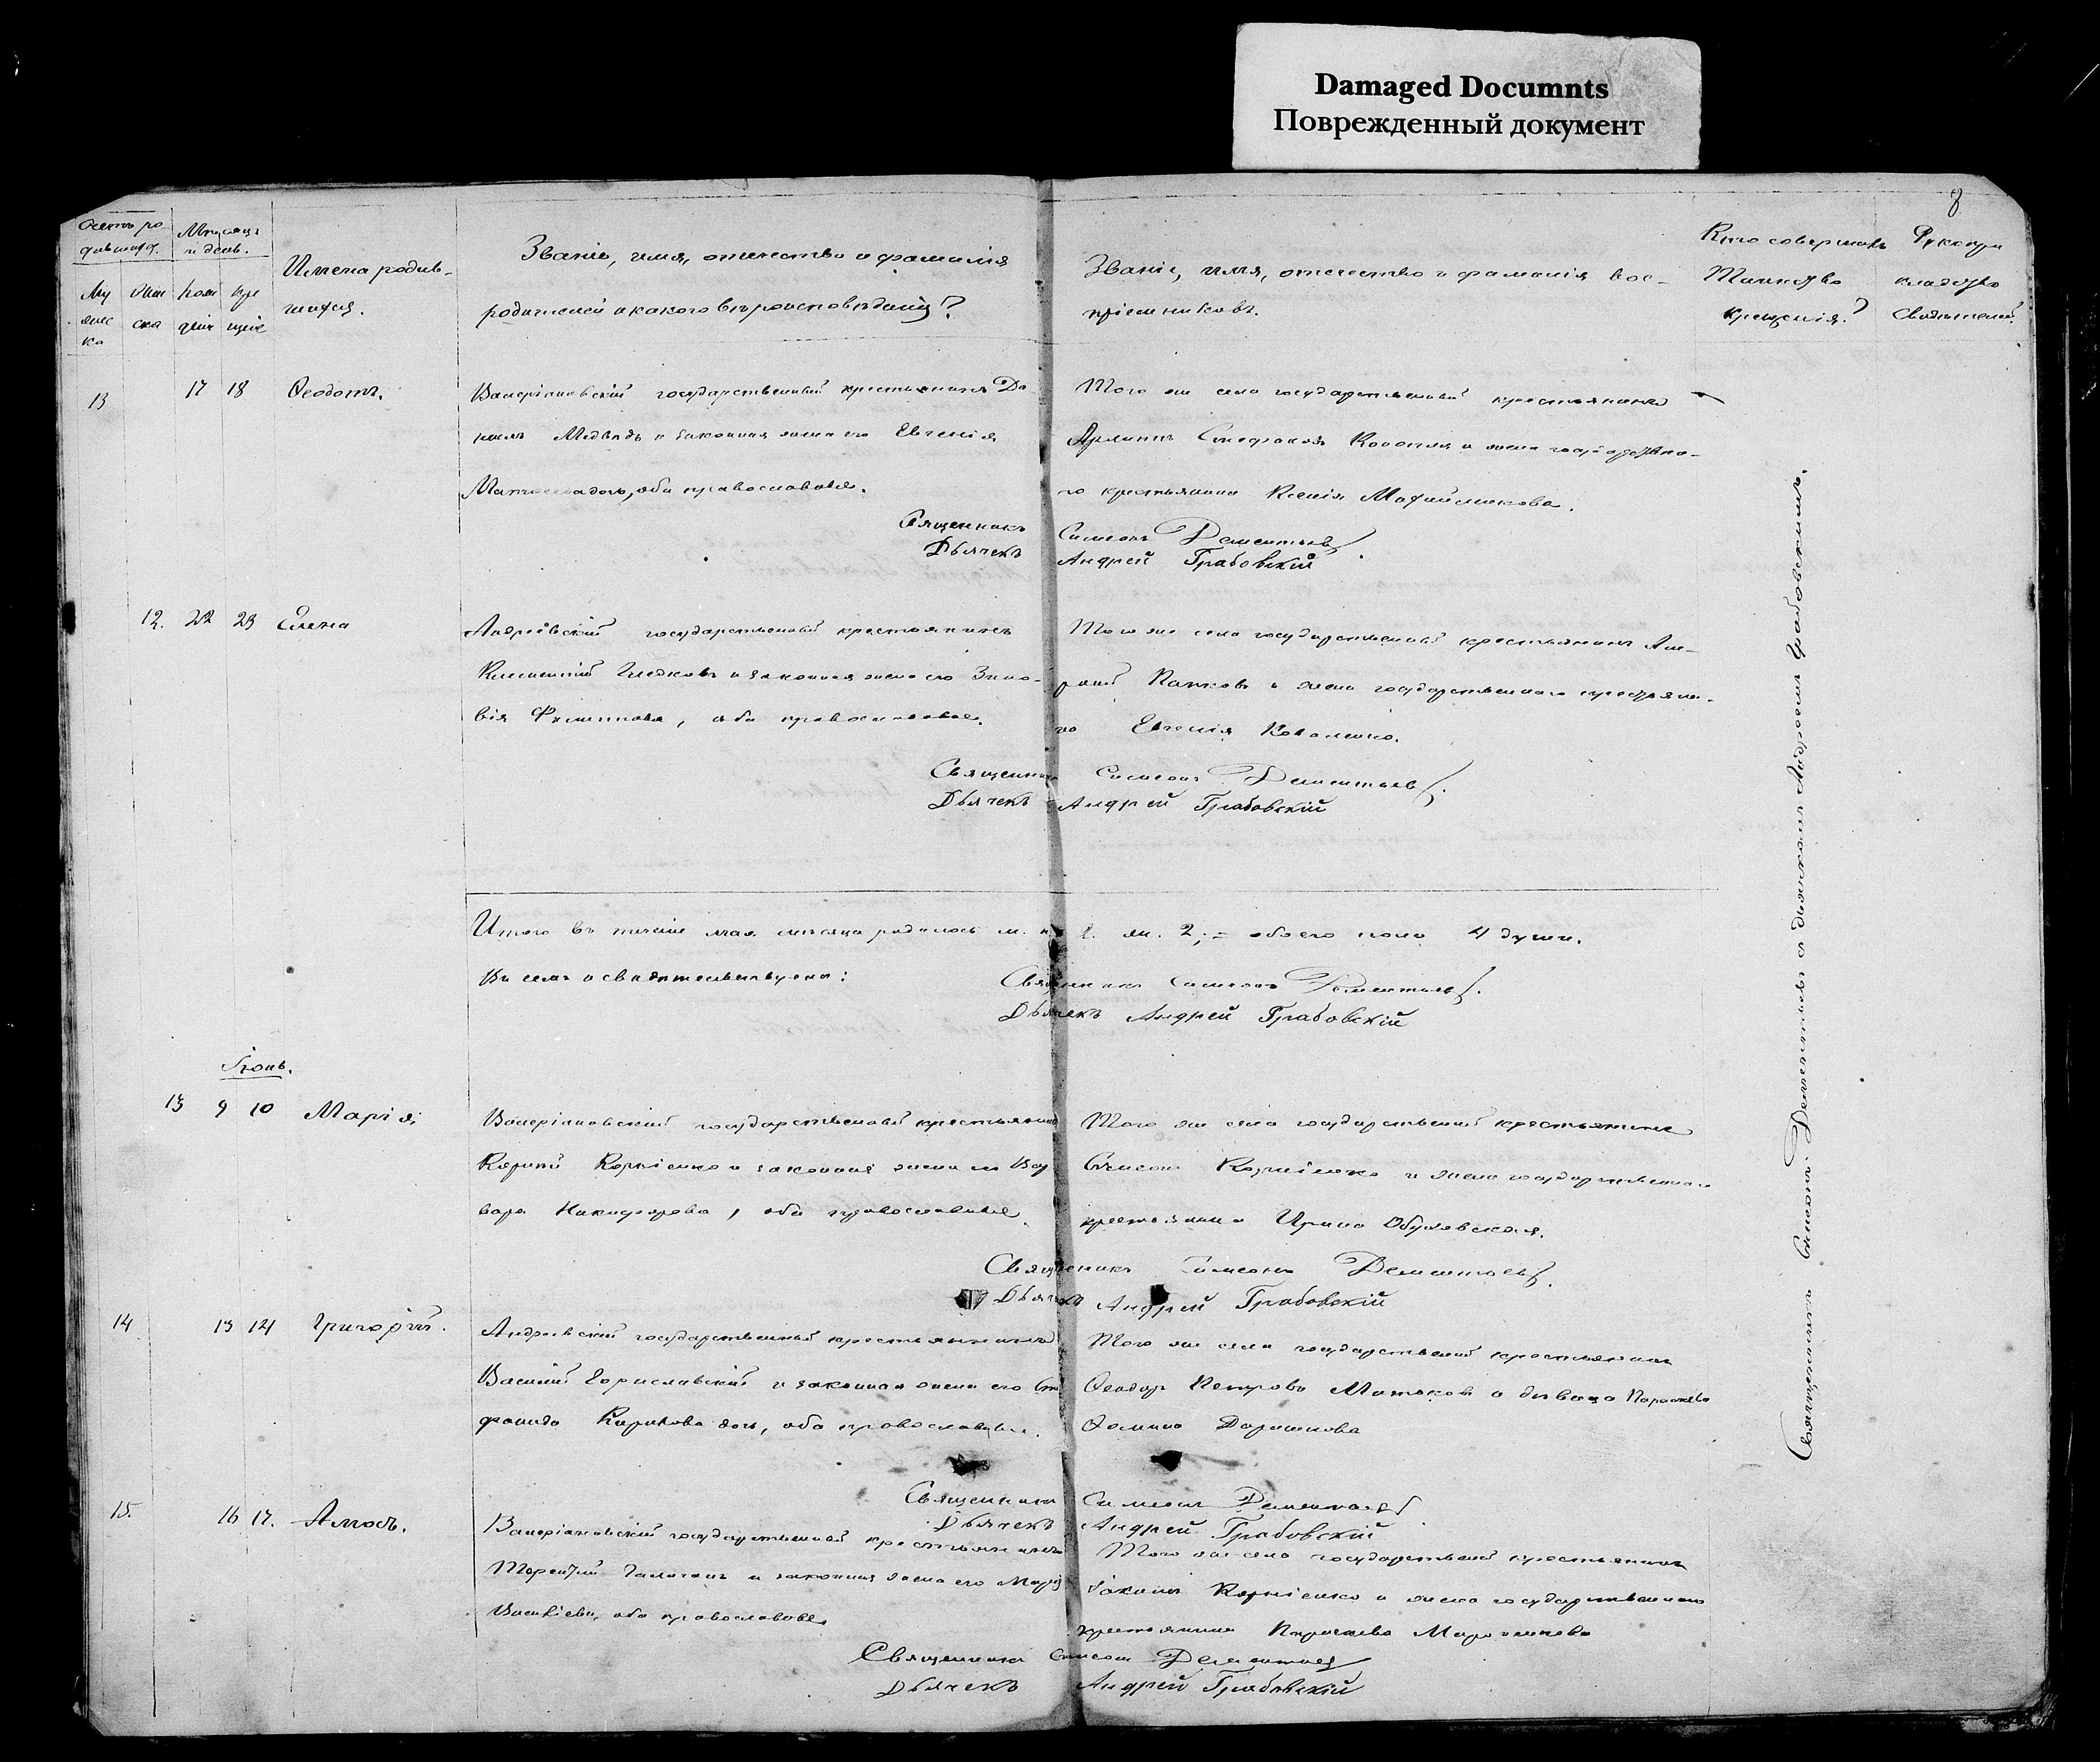 Damaged Documnts
Поврежденный документ
8
Счетъ ро
дившихся.
Мѣсяцъ
и день.
Имена родив-
шихся.
Званіе, имя, отчество и фамилія
родителей и какого вѣроисповѣданія?
Званіе, имя, отчество и фамилія вос-
пріемниковъ.
Кто совершалъ
Таинство
крещенія?
Рукопри
кладство
свидѣтелей.
Му
жес
ка
Жен
ска
рож
денія
кре
щенія
13
17 18
Ѳеодотъ.
Валеріановскій государственный крестьянинъ Да
Медвѣдь и законная жена его Евгенія
оба православные.
Того же села государственный крестьянинъ
Стефановъ и жена государственна-
го крестьянина Ксенія
Священникъ Симеонъ Дементьевъ
Дьячекъ Андрей Грабовскій
12. 22 23 Елена
Андреевскій государственный крестьянинъ
Климентій и законная жена его Зино-
вія Филиппова, оба православные.
Того же села государственный крестьянинъ Ан-
дрей и жена государственнаго крестьяни-
на Евгенія Коваленко.
Священникъ Симеонъ Дементьевъ.
Дьячекъ Андрей Грабовскій
Итого въ теченіе мая мѣсяца родилось м. п. 2. ж. 2; = обоего пола 4 души.
Въ семъ и свидѣтельствуемъ:
Священникъ Симеонъ Дементьевъ.
Дьячекъ Андрей Грабовскій
Іюнь.
13 9 10 Марія.
Валеріановскій государственный крестьянинъ
Корніенко и законная жена его Вар
вара Никифорова, оба православные.
Того же села государственный крестьянинъ
Симеонъ Корніенко и жена государственнаго
крестьянина Ирина Обуховская.
Священникъ Симеонъ Дементьевъ.
Дьячекъ Андрей Грабовскій
14 13 14 Григорій.
Андреевскій государственный крестьянинъ
Василій Бориславскій и законная жена его
Кирилова дочь, оба православные.
Того же села государственный крестьянинъ
Ѳеодоръ Петровъ и дѣвица Параскева
Ѳомина
Священникъ Симеонъ Дементьевъ
Дьячекъ Андрей Грабовскій
15. 16 17. Амосъ.
Валеріановскій государственный крестьянинъ
Терентій и законная жена его Марія
оба православные
Того же села государственный крестьянинъ
Іоакимъ Корніенко и жена государственнаго
крестьянина Параскева
Священникъ Симеонъ Дементьевъ
Дьячекъ Андрей Грабовскій
Священникъ Симеонъ Дементьевъ съ дьячкомъ Андреемъ Грабовскимъ.